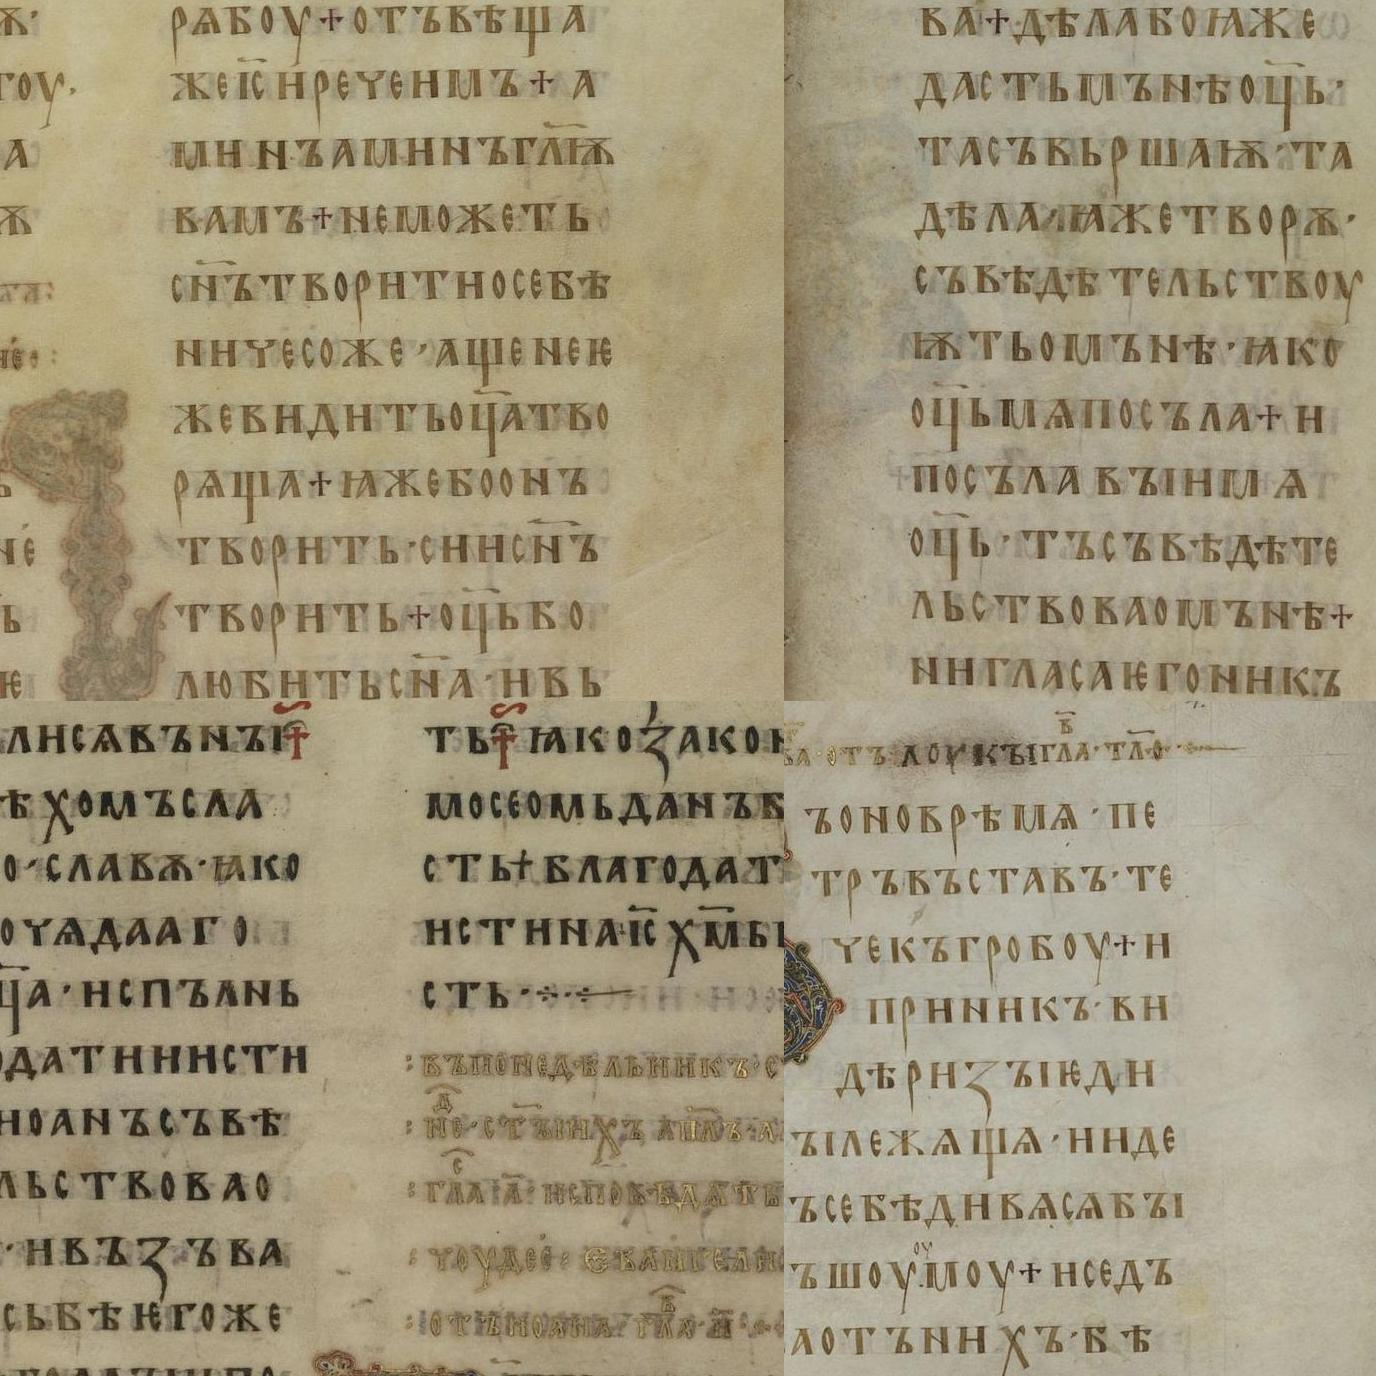 рѧбоу+отъвѣща
жеіс҃ ꙇречеимъ+а
миинъаминъгл҃ѭ
вамъ+неможеть
сн҃ътворитиосебѣ
ничесоже·ащенеѥ
жевидитьоц҃атво
рѧща+ꙗжебоонъ
творить·сиисн҃ъ
творить+оц҃ьбо
любитьсн҃а·ивь
ва+дѣлабоꙗже
дастьмънѣоц҃ь·
тасъвьршаѭ·та
дѣла·ꙗжетворѫ·
съвѣдѣтельствоу
ѭтьомънѣ·ꙗко
оц҃ьмѧпосъла+и
посълавъıимѧ
оц҃ь·тъсъвѣдѣте
льствоваомънѣ+
нигласаѥгоникъ
лисѧвънъı+
ѣхомъсла
о·славѫ·ꙗко
очѧдааго
ц҃а·испълнь
датииисти
иоанъсъвѣ
льствовао
·ивъзъва
сьбѣѥгоже
ть+ꙗкозакон
мосеомьданъб
сть+благодат
истинаіс҃хм҃ьбъı
сть·
въпонедѣльникъ·с
не·ст҃ъıихъап҃лъ·
гл҃а·а҃·исповѣдать
чоудес·евангели
отъиоана·гл҃а·
отълоукъıгл҃а·
ъоноврѣмѧ·пе
тръвъставъ·те
чекъгробоу+и
приникъ·ви
дѣризъıѥди
ъıлежѧщѧ·ииде
ъсебѣдивѧсѧбъı
ъшоуоумоу+иседъ
аотънихъ·бѣ